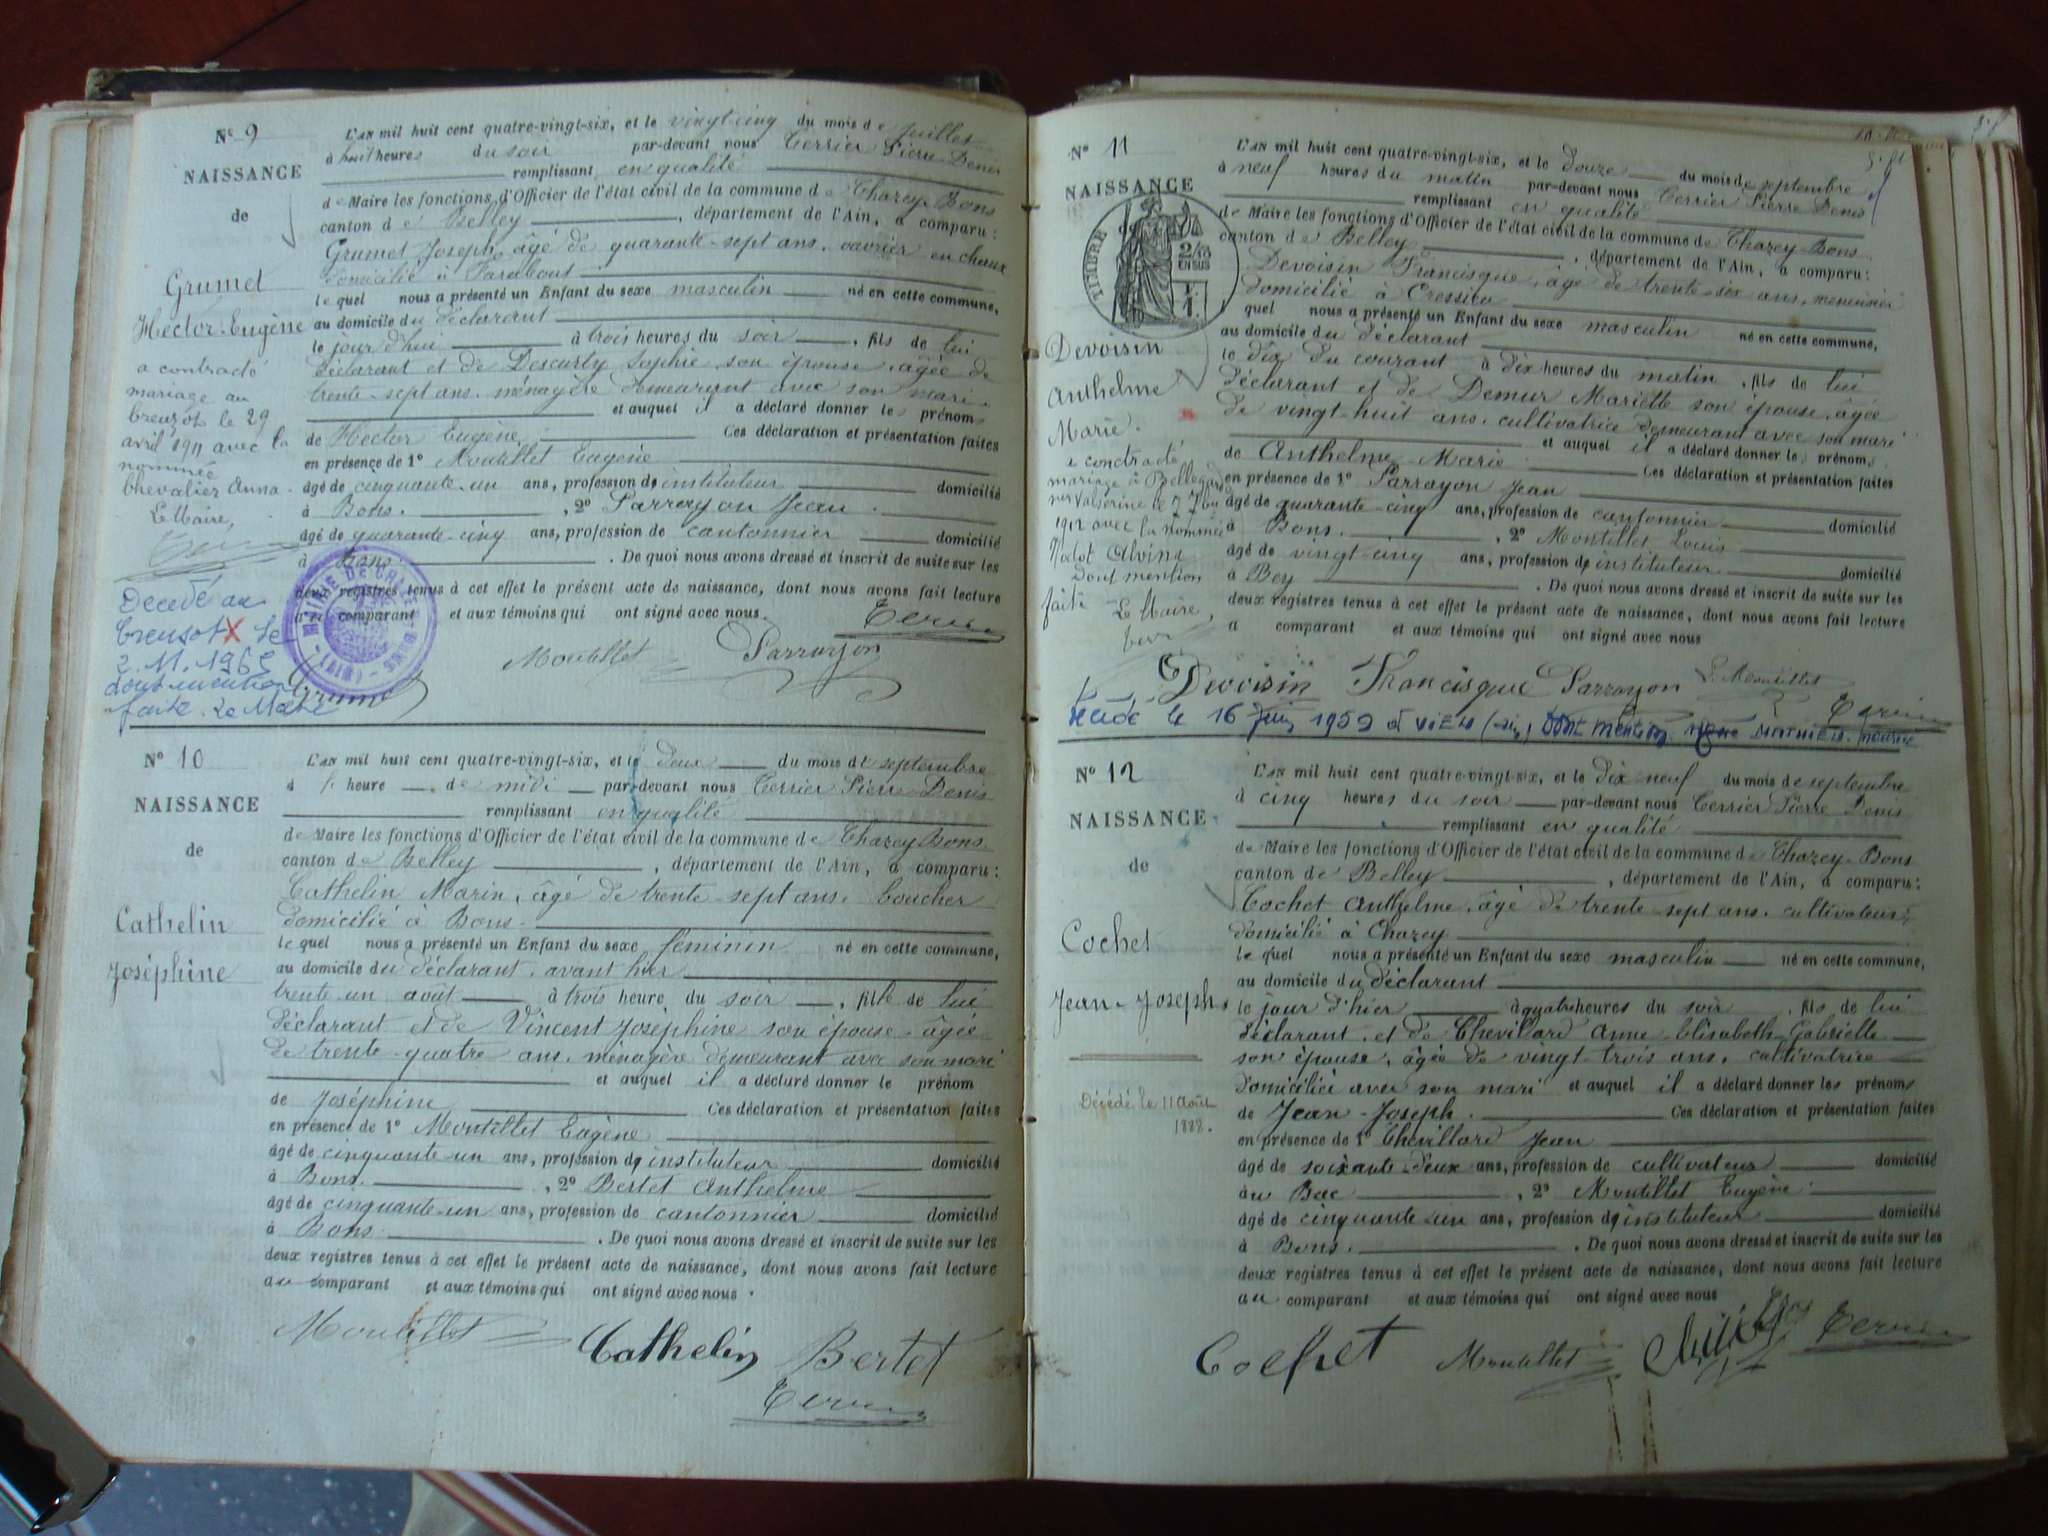 N° 9
NAISSANCE
de
Grumet
Hector-Eugène
a contracté
mariage au
Creuzot le 29
avril 1911 avec la
nommée
Chevalier Anna.
Le Maire,
Décédé au
Creusot X le
2.11.1965
dont mention
faite. Le Maire
MAIRIE DE CHAZEY-BONS (AIN)
L'AN mil huit cent quatre-vingt-six, et le vingt-cinq du mois de juillet
à huit heures du soir par-devant nous Terrier Pierre Denis
remplissant en qualité
de Maire les fonctions d'Officier de l'état civil de la commune de Chazey-Bons
canton de Belley, département de l'Ain, a comparu:
Grumet Joseph, âgé de quarante-sept ans, ouvrier en chaux
domicilié à
le quel nous a présenté un Enfant du sexe masculin né en cette commune,
au domicile du déclarant
le jour d'hui à trois heures du soir, fils de lui
déclarant et de Descurty Sophie son épouse, âgée de
trente-sept ans, ménagère demeurant avec son mari
et auquel il a déclaré donner les prénoms
de Hector Eugène. Ces déclaration et présentation faites
en présence de 1° Moutillet Eugène
âgé de cinquante-un ans, profession d'instituteur domicilié
à Bons, 2° Parrayon Jean
âgé de quarante-cinq ans, profession de cantonnier domicilié
à Bons. De quoi nous avons dressé et inscrit de suite sur les
deux registres tenus à cet effet le présent acte de naissance, dont nous avons fait lecture
au comparant et aux témoins qui ont signé avec nous.
Terrier
Moutillet Parrayon
Grumet
N° 10
NAISSANCE
de
Cathelin
Joséphine
L'AN mil huit cent quatre-vingt-six, et le deux du mois de septembre
à heure de midi par-devant nous Terrier Pierre Denis
remplissant en qualité
de Maire les fonctions d'Officier de l'état civil de la commune de Chazey Bons
canton de Belley, département de l'Ain, a comparu:
Cathelin Marin, âgé de trente-sept ans, boucher
domicilié à Bons
le quel nous a présenté un Enfant du sexe féminin né en cette commune,
au domicile du déclarant, avant hier
trente un août à trois heure du soir, fille de lui
déclarant et de Vincent Joséphine son épouse âgée
de trente-quatre ans, ménagère demeurant avec son mari
et auquel il a déclaré donner le prénom
de Joséphine Ces déclaration et présentation faites
en présence de 1° Moutillet Eugène
âgé de cinquante-un ans, profession d'instituteur domicilié
à Bons, 2° Bertet Anthelme
âgé de cinquante-un ans, profession de cantonnier domicilié
à Bons. De quoi nous avons dressé et inscrit de suite sur les
deux registres tenus à cet effet le présent acte de naissance, dont nous avons fait lecture
au comparant et aux témoins qui ont signé avec nous.
Moutillet Cathelin Bertet
Terrier
N° 11
NAISSANCE
de
TIMBRE
2/10
EN SUS
Devoisin
Anthelme
Marie.
a contracté
mariage à Bellegarde
sur Valserine le 7 7bre
1912 avec la nommée
Nodot Alvina
dont mention
faite Le Maire,
L'AN mil huit cent quatre-vingt-six, et le douze du mois de septembre
à neuf heures du matin par-devant nous Terrier Pierre Denis
remplissant en qualité
de Maire les fonctions d'Officier de l'état civil de la commune de Chazey-Bons
canton de Belley, département de l'Ain, a comparu:
Devoisin Francisque, âgé de trente-six ans, menuisier
domicilié à Cressieu
quel nous a présenté un Enfant du sexe masculin né en cette commune,
au domicile du déclarant
le dix du courant à dix heures du matin, fils de lui
déclarant et de Demur Mariette son épouse, âgée
de vingt-huit ans, cultivatrice demeurant avec son mari
et auquel il a déclaré donner les prénoms
de Anthelme-Marie Ces déclaration et présentation faites
en présence de 1° Parrayon Jean
âgé de quarante-cinq ans, profession de cantonnier domicilié
à Bons, 2° Moutillet Louis
âgé de vingt-cinq ans, profession d'instituteur domicilié
à Bey. De quoi nous avons dressé et inscrit de suite sur les
deux registres tenus à cet effet le présent acte de naissance, dont nous avons fait lecture
a comparant et aux témoins qui ont signé avec nous
Devoisin Francisque Parrayon L. Moutillet
Terrier
décédé le 16 Juin 1959 à (Ain) dont mention
N° 12
NAISSANCE
de
Cochet
Jean-Joseph.
Décédé le 11 Août
1888.
L'AN mil huit cent quatre-vingt-six, et le dix-neuf du mois de septembre
à cinq heures du soir par-devant nous Terrier Pierre Denis
remplissant en qualité
de Maire les fonctions d'Officier de l'état civil de la commune de Chazey-Bons
canton de Belley, département de l'Ain, a comparu:
Cochet Anthelme, âgé de trente-sept ans, cultivateur,
domicilié à Chazey
le quel nous a présenté un Enfant du sexe masculin né en cette commune,
au domicile du déclarant
le jour d'hier à quatre heures du soir, fils de lui
déclarant et de Chevillard Anne Elisabeth Gabrielle
son épouse, âgée de vingt-trois ans, cultivatrice
domiciliée avec son mari et auquel il a déclaré donner les prénoms
de Jean-Joseph. Ces déclaration et présentation faites
en présence de 1° Chevillard Jean
âgé de soixante-deux ans, profession de cultivateur domicilié
au Bac, 2° Moutillet Eugène
âgé de cinquante-un ans, profession d'instituteur domicilié
à Bons. De quoi nous avons dressé et inscrit de suite sur les
deux registres tenus à cet effet le présent acte de naissance, dont nous avons fait lecture
au comparant et aux témoins qui ont signé avec nous
Cochet Moutillet Terrier